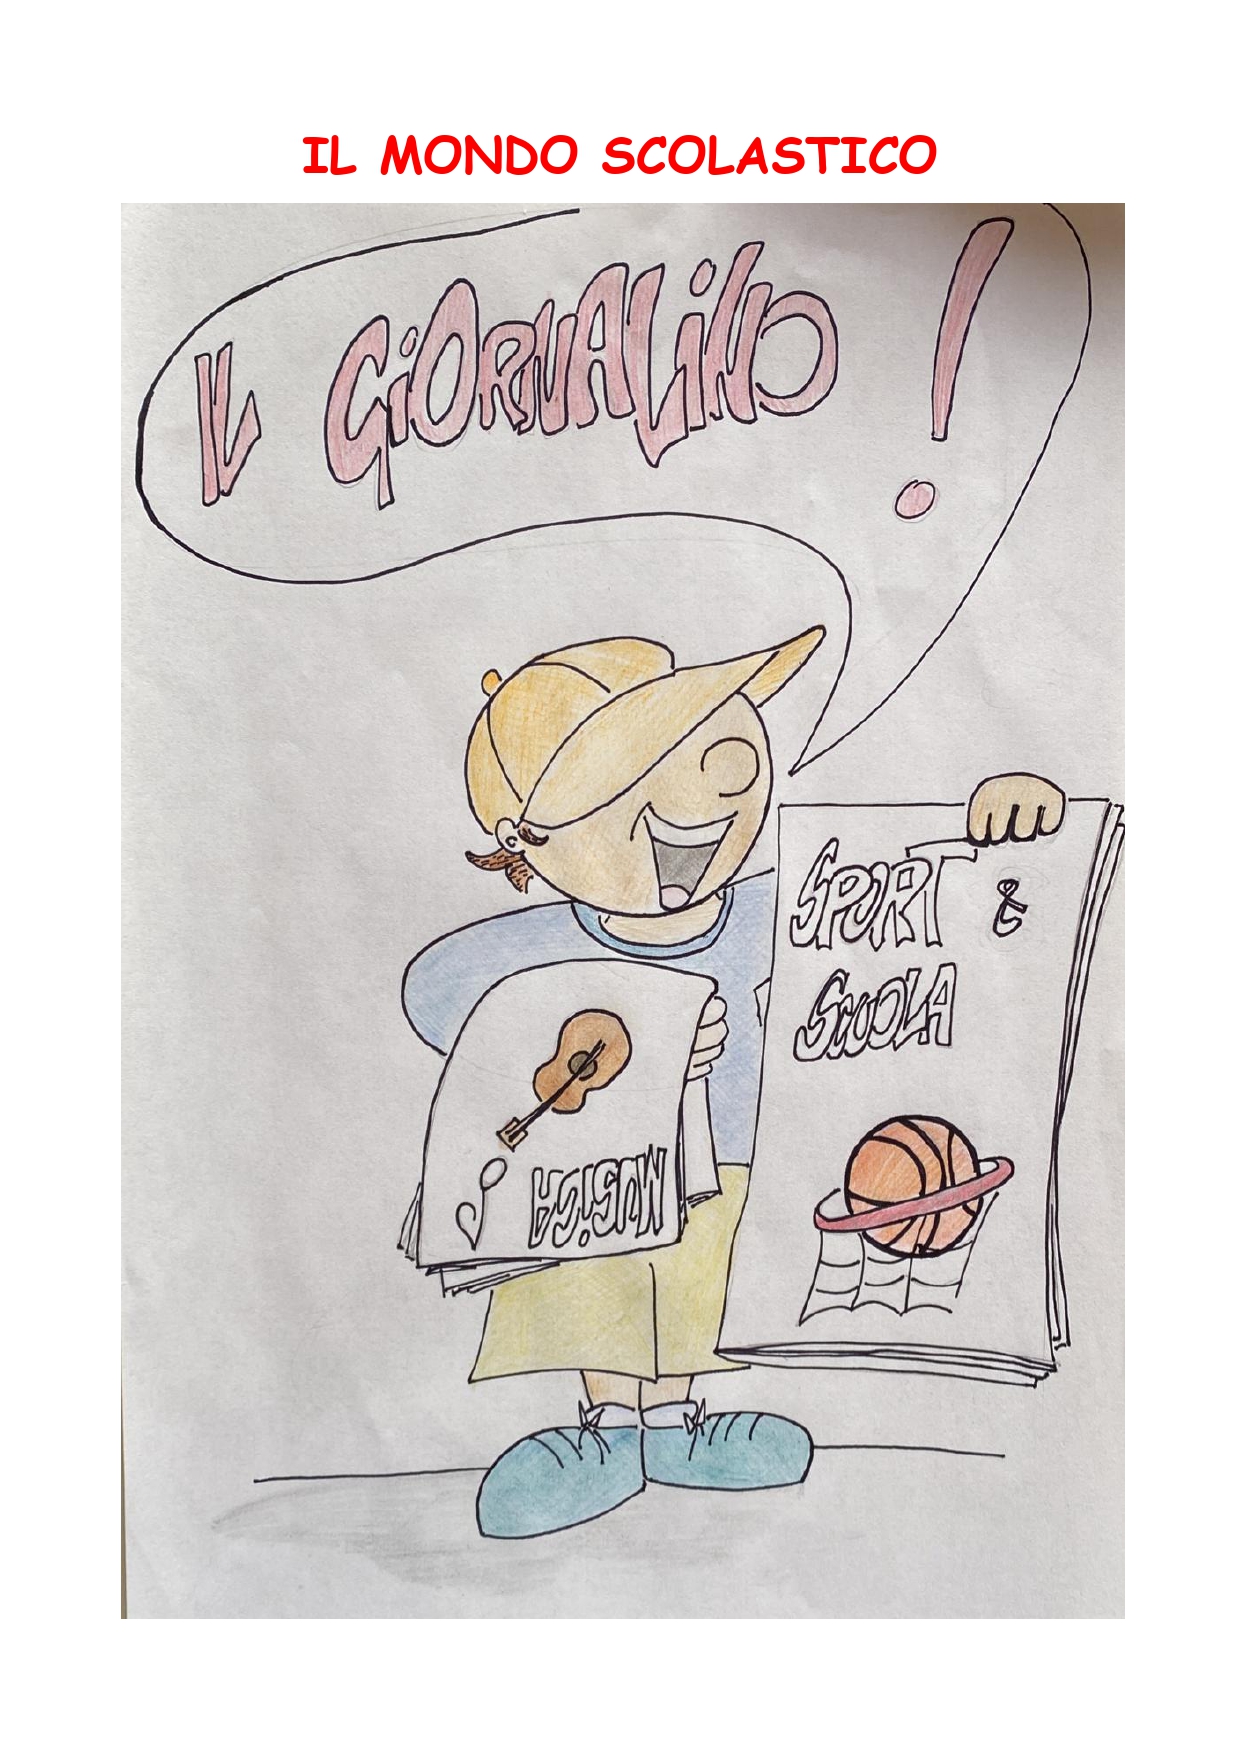 IL MONDO SCOLASTICO
IL GIORNALINO !
SPORT &
SCUOLA
MUSICA